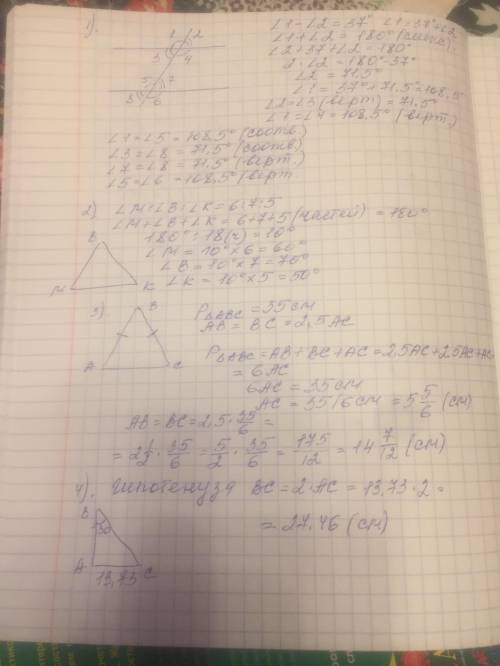 1).
∠1-∠2=37° ∠1=37°+∠2
∠1+∠2=180° (смежс).
∠2+37+∠2=180°
2·∠2=180°-37°
∠2=71,5°
∠1=37°+71,5°=108,5°
∠2=∠3 (верт)=71,5°
∠1=∠4=108,5° (верт.)
1 2
3 4
5 7
8 6
∠1=∠5=108,5° (соотв)
∠3=∠8=71,5° (соотв)
∠7=∠8=71,5° (верт.
∠5=∠6=108,5° (верт.
2) ∠M:∠B:∠K=6:7:5
∠M+∠B+∠K=6+7+5 (частей)=180°
180°:18(ч)=10°
∠M=10°×6=60°
∠B=10°×7=70°
∠K=10°×5=50°
B
M K
3)
B
A C
P△ABC=35см
AB=BC=2,5AC
P△ABC=AB+BC+AC=2,5AC+2,5AC+AC
=6AC
6AC=35см
AC=35/6см=5 5/6 (см)
AB=BC=2,5·35/6=
=2 1/2·35/6=5/2·35/6=175/12=14 7/12 (см)
4). гипотенуза BC=2·AC=13,73·2=
=27,46 (см)
B
30
A C
13,73